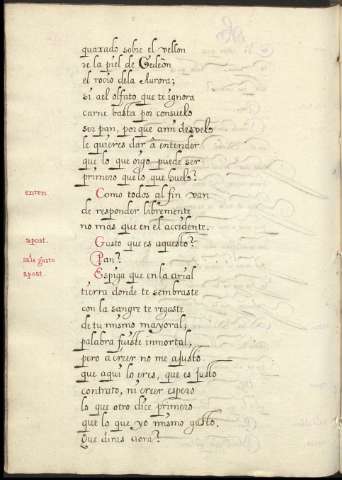 quaxado sobre el vellon
de la piel de Gedeòn
el rocio dela Aurora;
si àel olfato que te ignora
carne basta por consuelo
ser pan, porque à mi desvelo
le quieres dar à entender
que lo que oygo puede ser
primero que lo que huelo?
enten. Como todos al fin van
de responder libremente
no mas que en el accidente.
apost. Gusto que es aquesto?
sale gusto Pan?
apost. Espiga que en la arial
tierra donde te sembraste
con la sangre te regaste
de tu mismo mayoral;
palabra fuiste inmortal,
pero à creer no me ajusto
que aqui lo eres, que es justo
contrato, ni creer espero
lo que otro dice primero
que lo que yo mismo gusto.
Que diras aora?